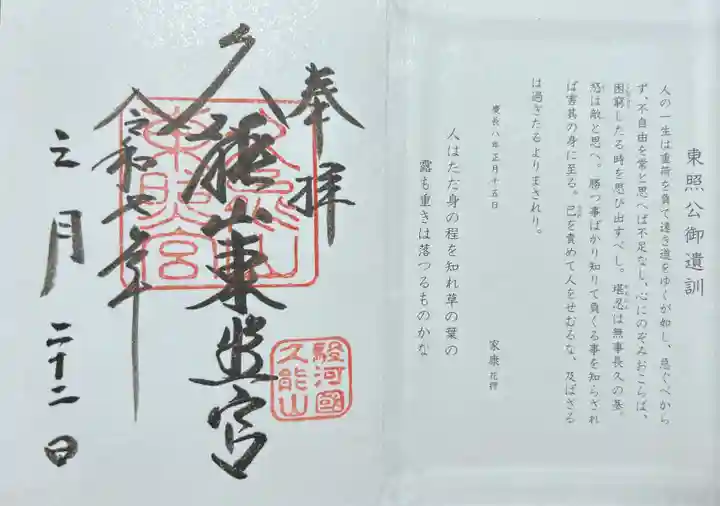 東照公御遺訓
人の一生は重荷を負て遠き道をゆくが如し、急ぐべから
ず、不自由を常と思へば不足なし、心にのぞみおこらば、
困窮したる時を思ひ出すべし。堪忍は無事長久の基。
怒は敵と思へ。勝つ事ばかり知りて負くる事を知らざれ
ば害其の身に至る。己を責めて人をせむるな、及ばざる
は過ぎたるよりまされり。
慶長八年正月十五日
家康 花押
人はただ身の程を知れ草の葉の
露も重きは落つるものかな
奉拝
久能山東照宮
久能山
東照宮
駿河國
久能山
令和七年
三月二十二日